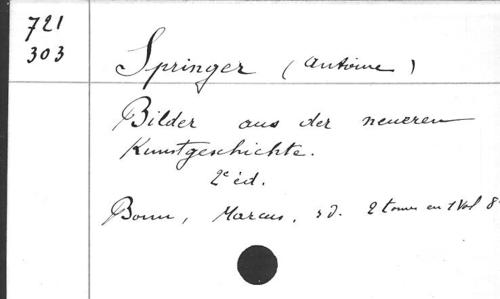 721
303
Springer (Antoine)
Bilder aus der neueren
Kunstgeschichte.
2e éd.
Bonn, Marcus, s d. 2 tomes en 1 Vol 8°